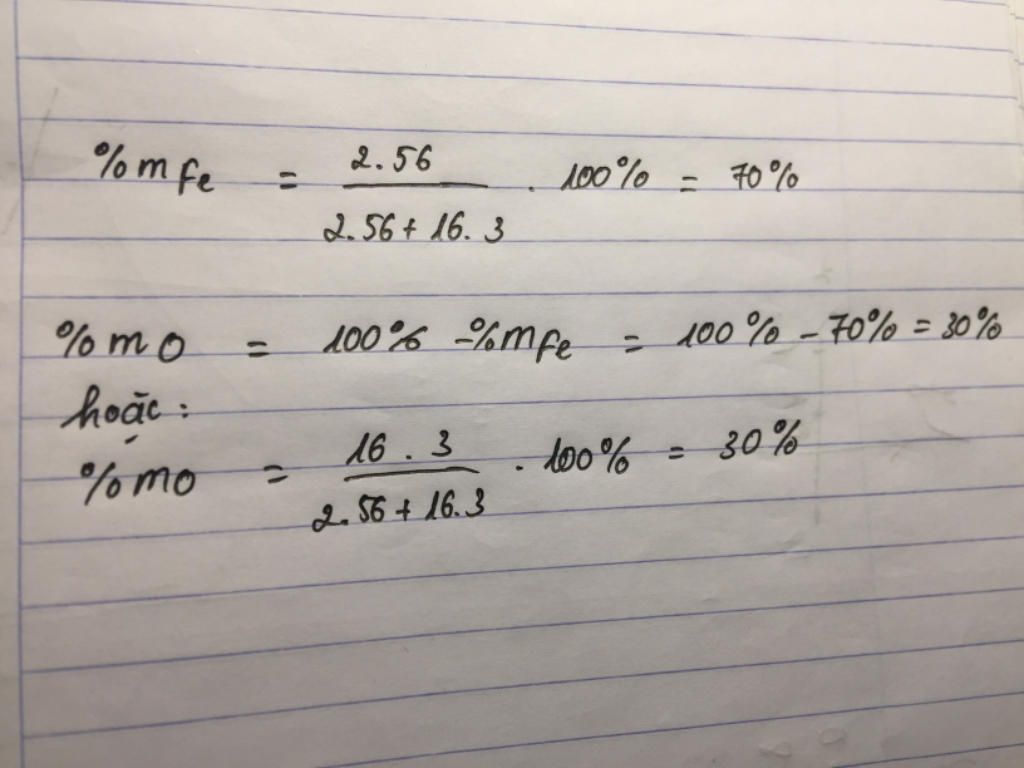 %mFe = 2.56 / 2.56 + 16.3 . 100% = 70%
%mO = 100% - %mFe = 100% - 70% = 30%
hoặc:
%mO = 16.3 / 2.56 + 16.3 . 100% = 30%